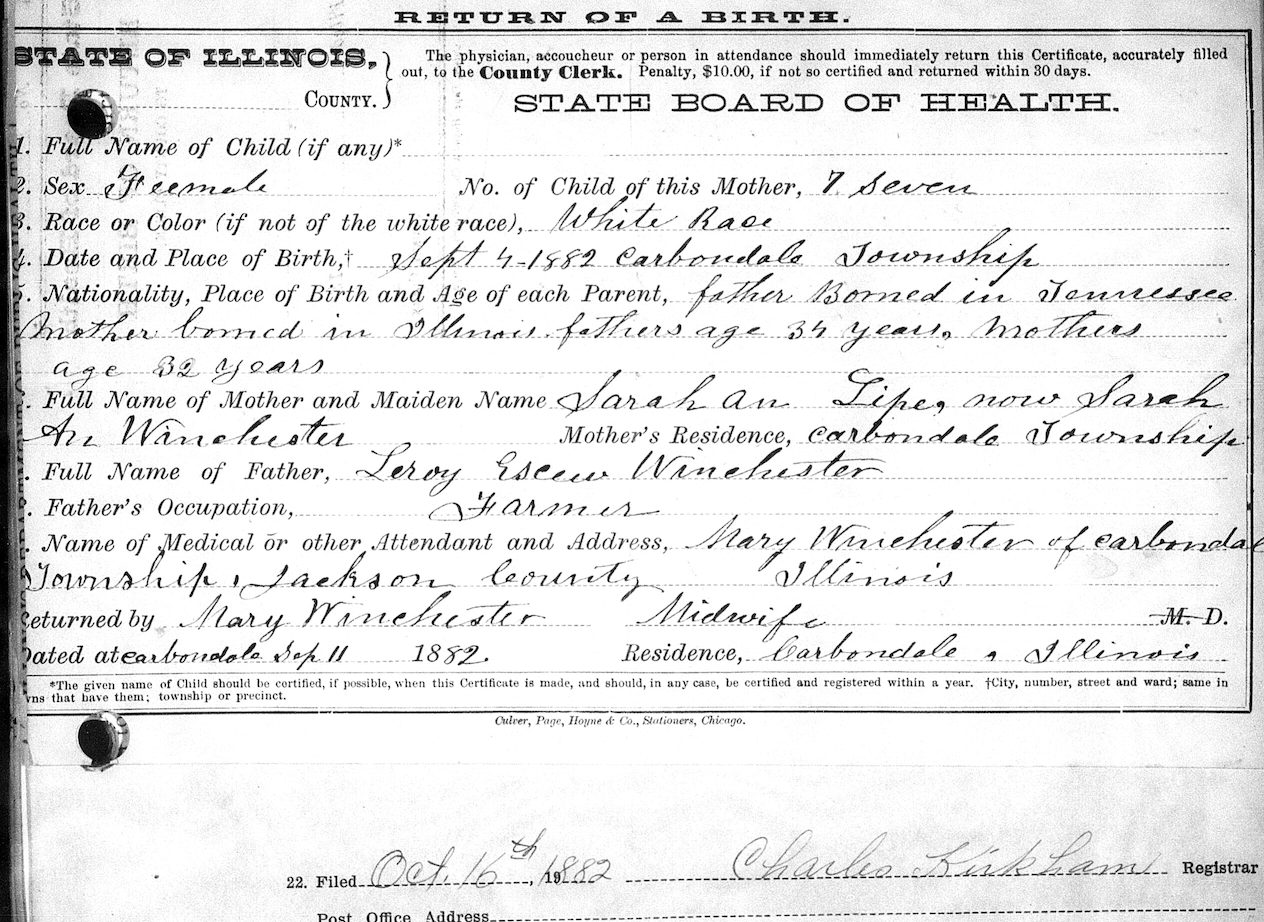 RETURN OF A BIRTH.
STATE OF ILLINOIS,
COUNTY.
The physician, accoucheur or person in attendance should immediately return this Certificate, accurately filled
out, to the County Clerk. Penalty, $10.00, if not so certified and returned within 30 days.
STATE BOARD OF HEALTH.
1. Full Name of Child (if any)*
2. Sex Feemale No. of Child of this Mother, 7 Seven
3. Race or Color (if not of the white race), White Race
4. Date and Place of Birth,† Sept 4-1882 Carbondale Township
5. Nationality, Place of Birth and Age of each Parent, father Borned in Tennessee
Mother borned in Illinois. fathers age 34 years, Mothers
age 32 years
. Full Name of Mother and Maiden Name Sarah An Lipe, now Sarah
An Winchester Mother's Residence, Carbondale Township
. Full Name of Father, Leroy Escew Winchester
. Father's Occupation, Farmer
. Name of Medical or other Attendant and Address, Mary Winchester of Carbondal
Township, Jackson County Illinois
eturned by Mary Winchester Midwife M. D.
Dated at Carbondale Sep 11 1882. Residence, Carbondale, Illinois
*The given name of Child should be certified, if possible, when this Certificate is made, and should, in any case, be certified and registered within a year. †City, number, street and ward; same in
wns that have them; township or precinct.
Culver, Page, Hoyne & Co., Stationers, Chicago.
22. Filed Oct. 16th, 191882 Charles Kirkham Registrar
Post Office Address